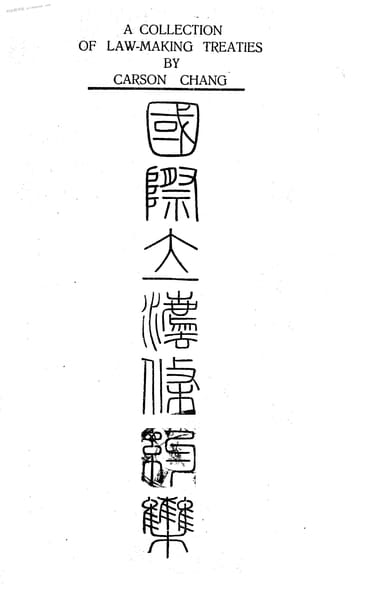 A COLLECTION
OF LAW-MAKING TREATIES
BY
CARSON CHANG
國際立灋條約集